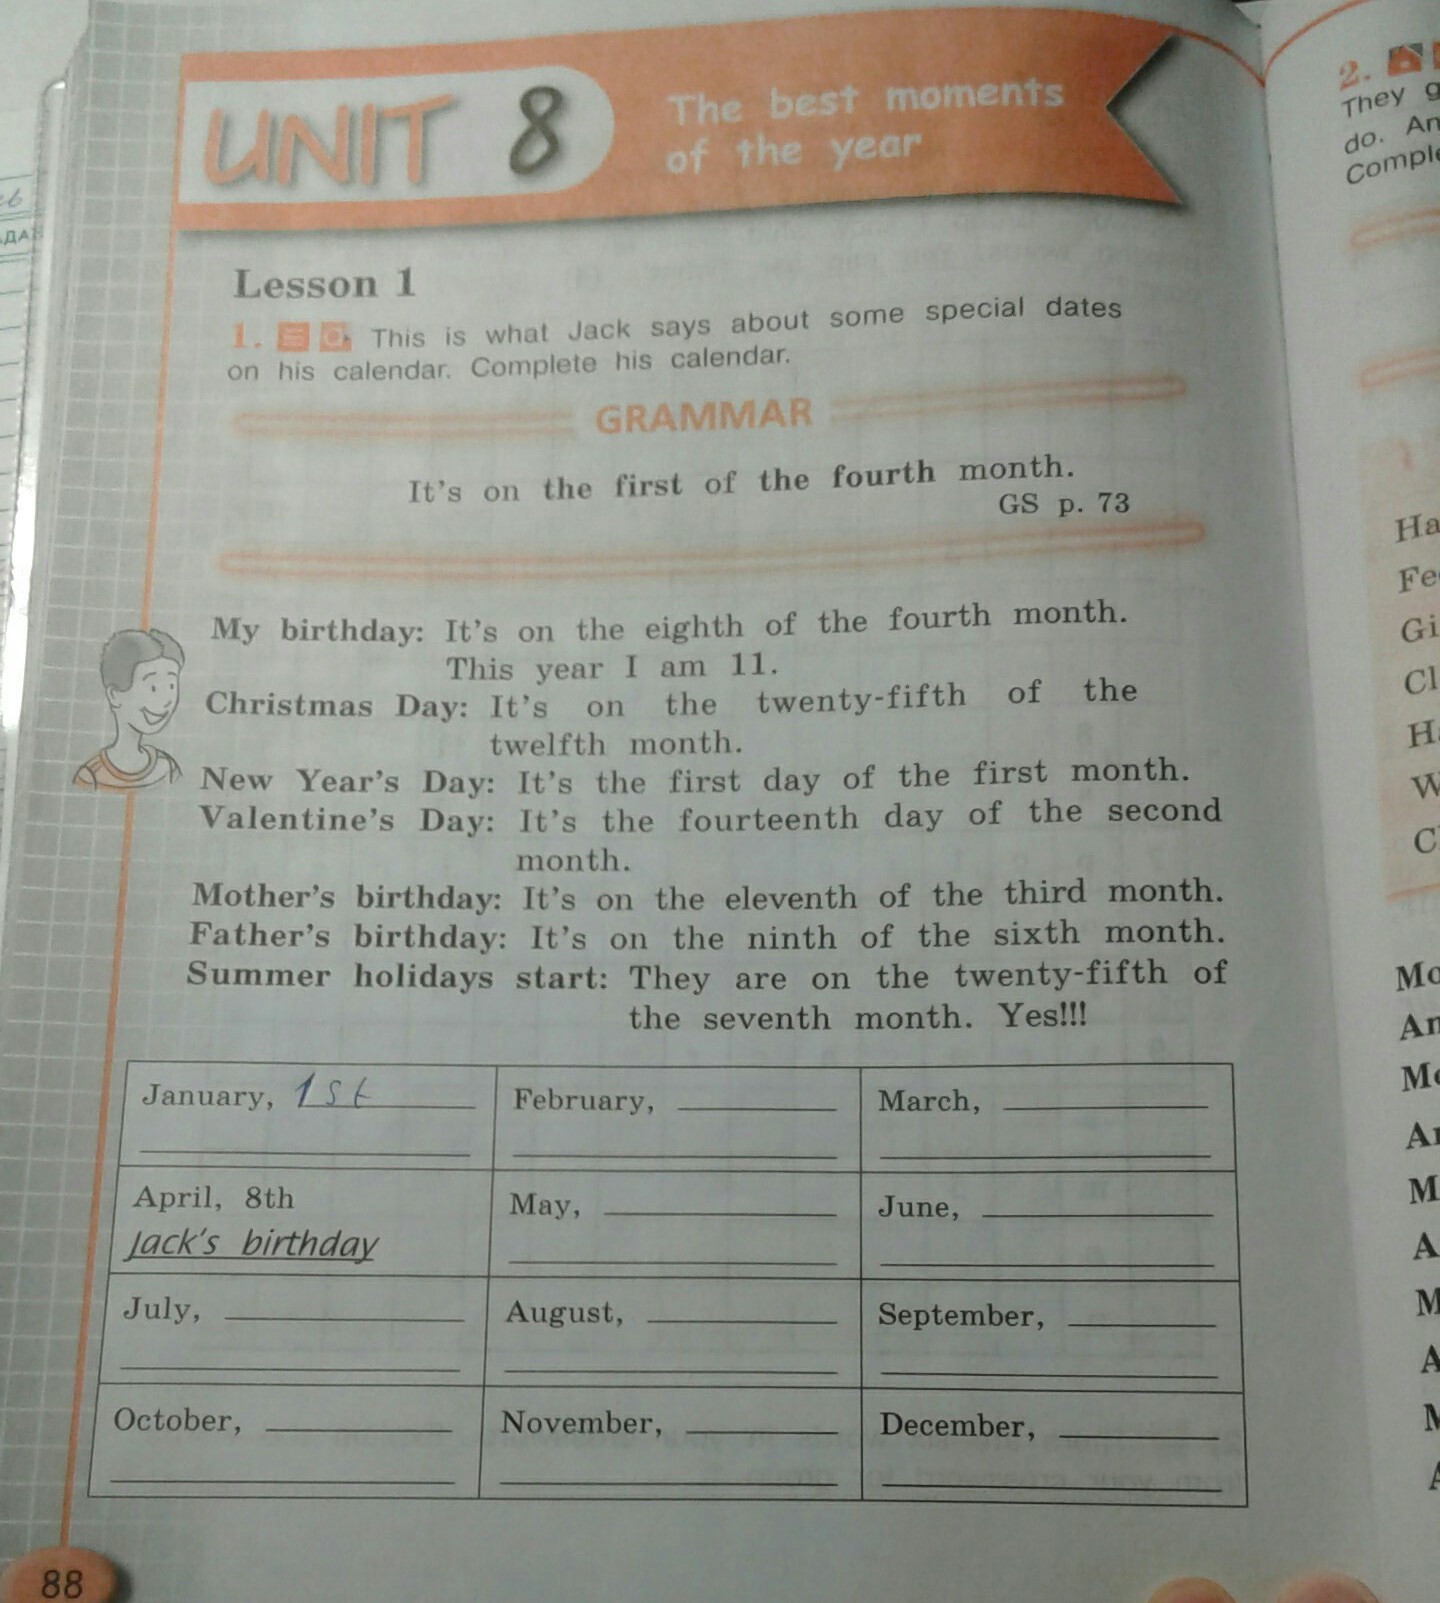 UNIT 8
The best moments
of the year
Lesson 1
1. This is what Jack says about some special dates
on his calendar. Complete his calendar.
GRAMMAR
It's on the first of the fourth month.
GS p. 73
My birthday: It's on the eighth of the fourth month.
This year I am 11.
Christmas Day: It's on the twenty-fifth of the
twelfth month.
New Year's Day: It's the first day of the first month.
Valentine's Day: It's the fourteenth day of the second
month.
Mother's birthday: It's on the eleventh of the third month.
Father's birthday: It's on the ninth of the sixth month.
Summer holidays start: They are on the twenty-fifth of
the seventh month. Yes!!!
January, 1st
February,
March,
April, 8th
Jack's birthday
May,
June,
July,
August,
September,
October,
November,
December,
88
2.
They
do.